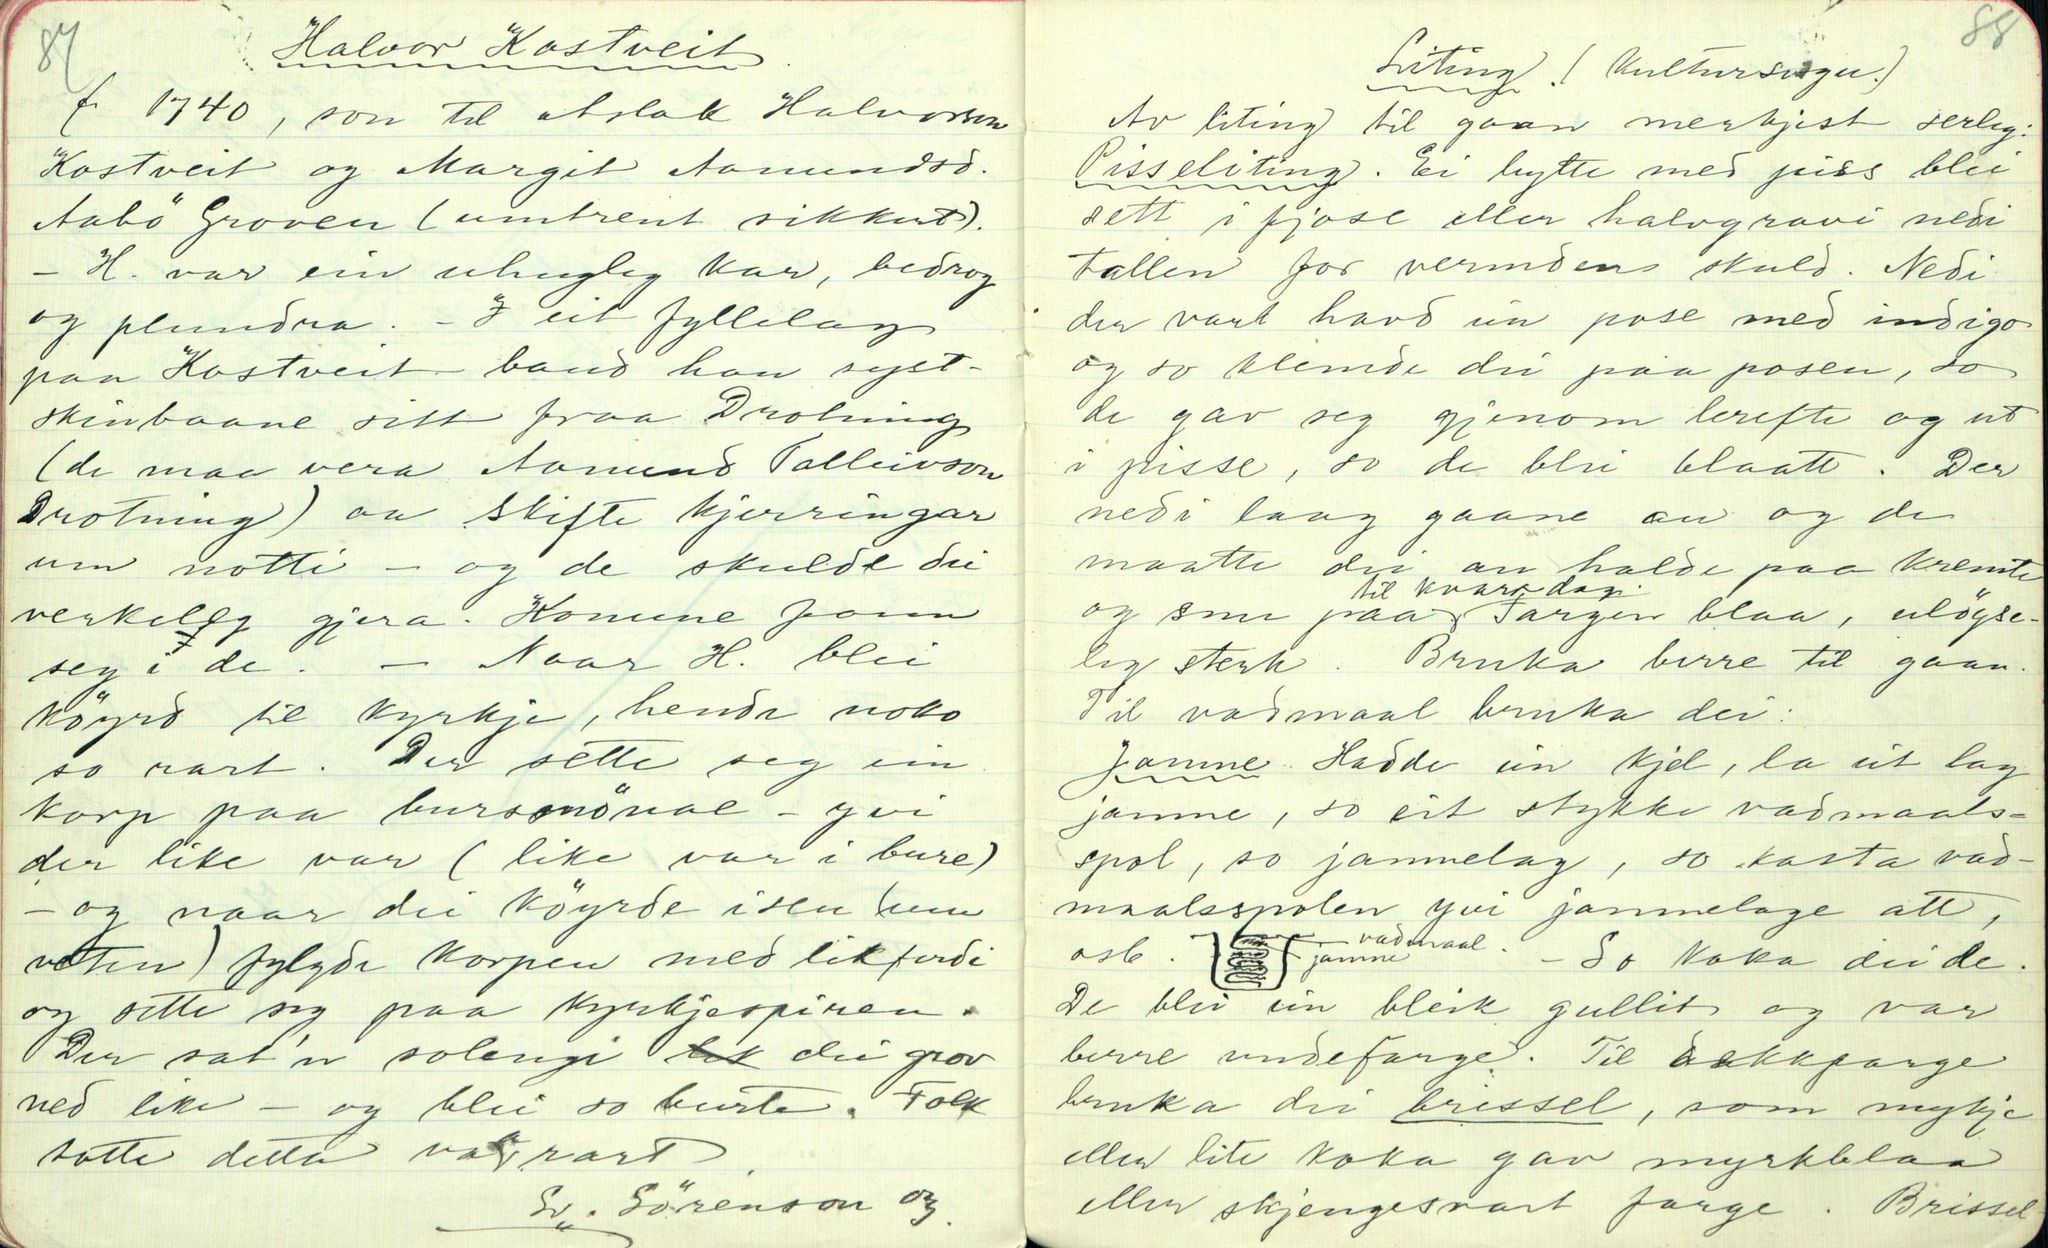 87
Halvor Kostveit
f 1740, son til Aslak Halvorson
Kostveit og Margit Aamundsd.
Aabö Groven (umtrent sikkert).
- H. var ein uhugleg kar, bedrog
og plundra. - I eit fyllelag
paa Kostveit baud han syst-
skinbaane sitt fraa Drotning
(de maa vera Aamund Talleivson
Drotning) aa skifte kjerringar
um notti - og de skulde dei
verkeleg gjera. Konune fann
seg i de. - Naar H. blei
köyrd til kyrkje, hende noko
so rart. Der sette seg ein
korp paa bursmönae - yvi
der like var (like var i bure)
- og naar dei köyrde isen (um
veten) fylgde korpen med likferdi
og sette seg paa kyrkjespiren.
Der sat'n solengi dei grov
ned like - og blei so burte. Folk
totte detta va rart
Sv. Sörenson og.
88
Liting. (Kultursogu.)
Av liting til gaan merkjest serleg:
Pisseliting. Ei bytte med piss blei
sett i fjose eller halvgravi nedi
tallen for vermdens skuld. Nedi
der vart havd ein pose med indigo
og so klemde dei paa posen, so
de gav seg gjenom lerefte og ut
i pisse, so de blei blaatt. Der
nedi laag gaane au og de
maatte dei au halde paa kremte
til kvar dag.
og snu paa Fargen blaa, ulögse-
leg sterk. Bruka berre til gaan.
Til vadmaal bruka dei:
Jamne Hadde ein kjel, la eit lag
jamne, so eit stykke vadmaals-
spol, so jamnelag, so kasta vad-
maalsspolen yvi jamnelage att,
osb.
vadmaal
jamne
- So koka dei de.
De blei ein bleik gullit og var
berre undefarge. Til dekkfarge
bruka dei brissel, som mykje
eller lite koka gav myrkblaa
eller skjengesvart farge. Brissel